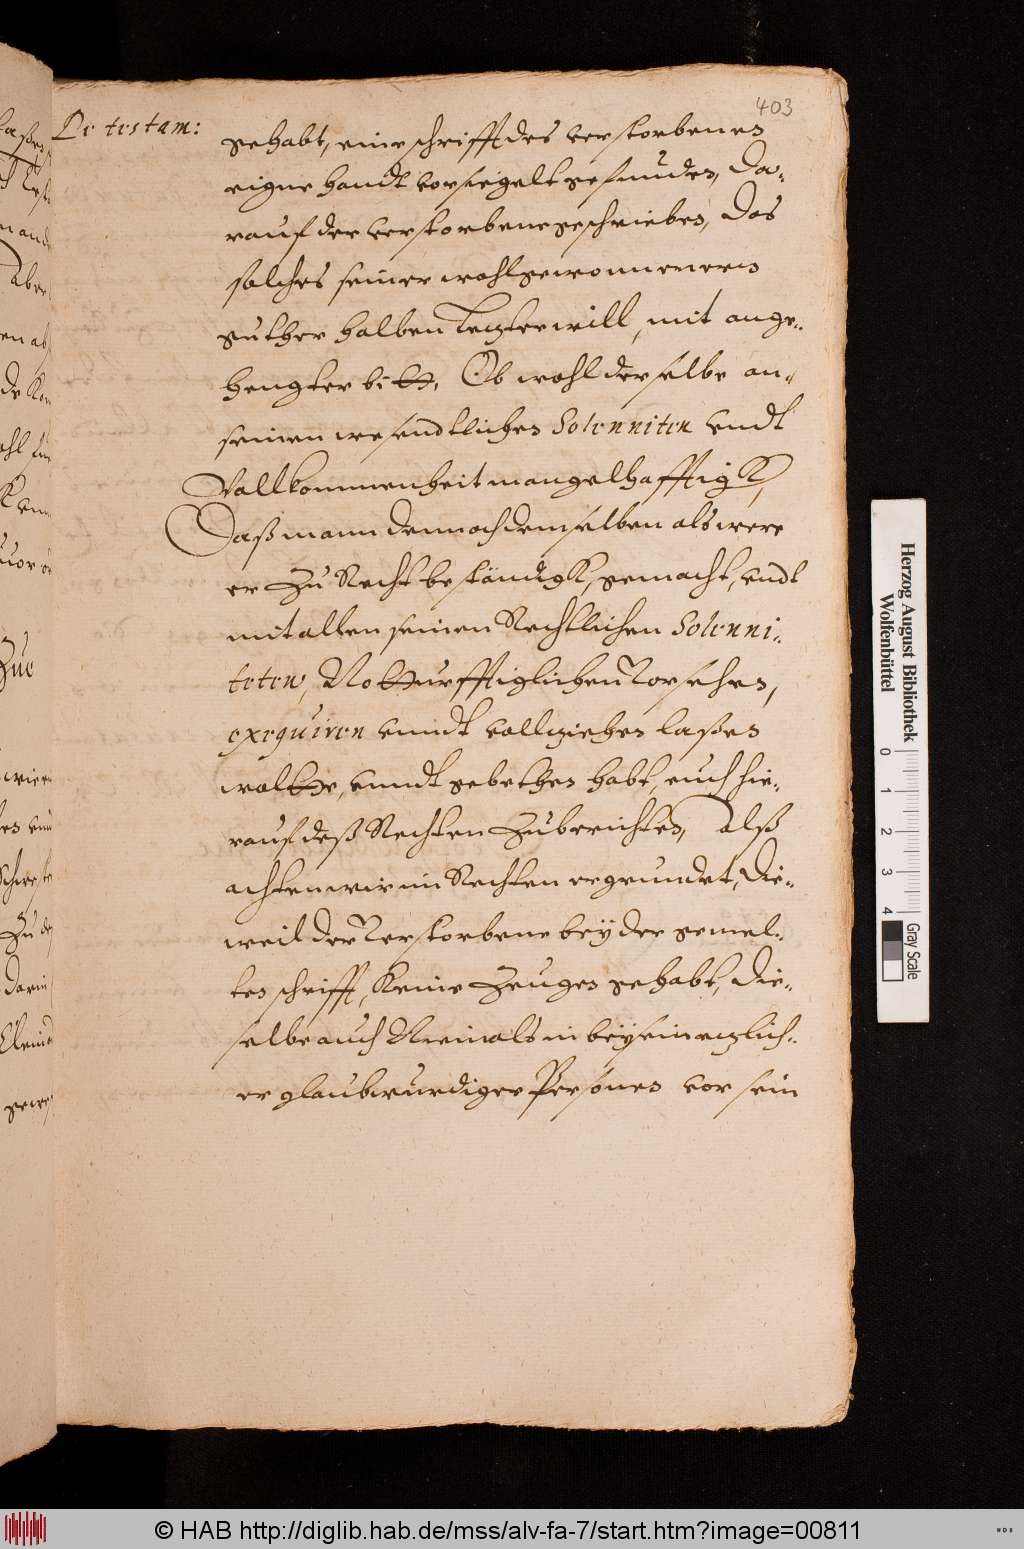 403
De testam:
gehabt, eine schrifft des verstorbenen
eigne handt vorsiegelt gefunden, da-
rauf der verstorbene geschrieben, das
solches seiner wohlgewonnenen
guther halben letzter will, mit ange-
hengter bitt, Ob wohl derselbe an
seinen wesendtlichen Solenniten vndt
Vollkommenheit mangelhafftigk,
Daß mann dennoch demselben als were
er zu Recht bestandigk, gemacht, vndt
mit allen seinen Rechtlichen Solenni-
teten, Notturfftiglichen Vorsehen,
exequiren vnndt vollziehen laßen
wolte, vnndt gebethen habt, euch hie-
rauf deß Rechten zuberichten, Alß
achten wir im Rechten ergrundet, Die-
weil der Verstorbene bey der gemel-
ten schrifft, keine Zeugen gehabt, die-
selbe auch Niemals in beysein etzlich-
er glaubwurdiger Personen vor sein
Herzog August Bibliothek
Wolfenbüttel
0 1 2 3 4
Gray Scale
© HAB http://diglib.hab.de/mss/alv-fa-7/start.htm?image=00811